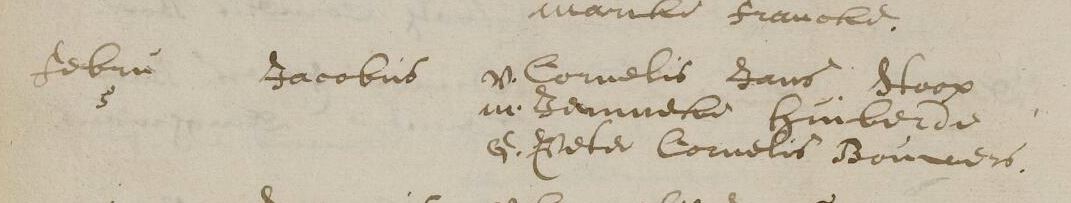 Maritie Franckē.
Febru Jacobus v. Cornelis Jans Stoop
5 m. Jenneke Huiberde
G. Peter Cornelis Bouwers.